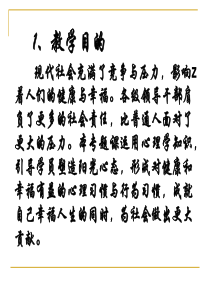 1、教学目的
现代社会充满了竞争与压力，影响Z
着人们的健康与幸福。各级领导干部肩
负了更多的社会责任，比普通人面对了
更大的压力。本专题课运用心理学知识，
引导学员塑造阳光心态，形成对健康和
幸福有益的心理习惯与行为习惯，成就
自己幸福人生的同时，为社会做出更大
贡献。